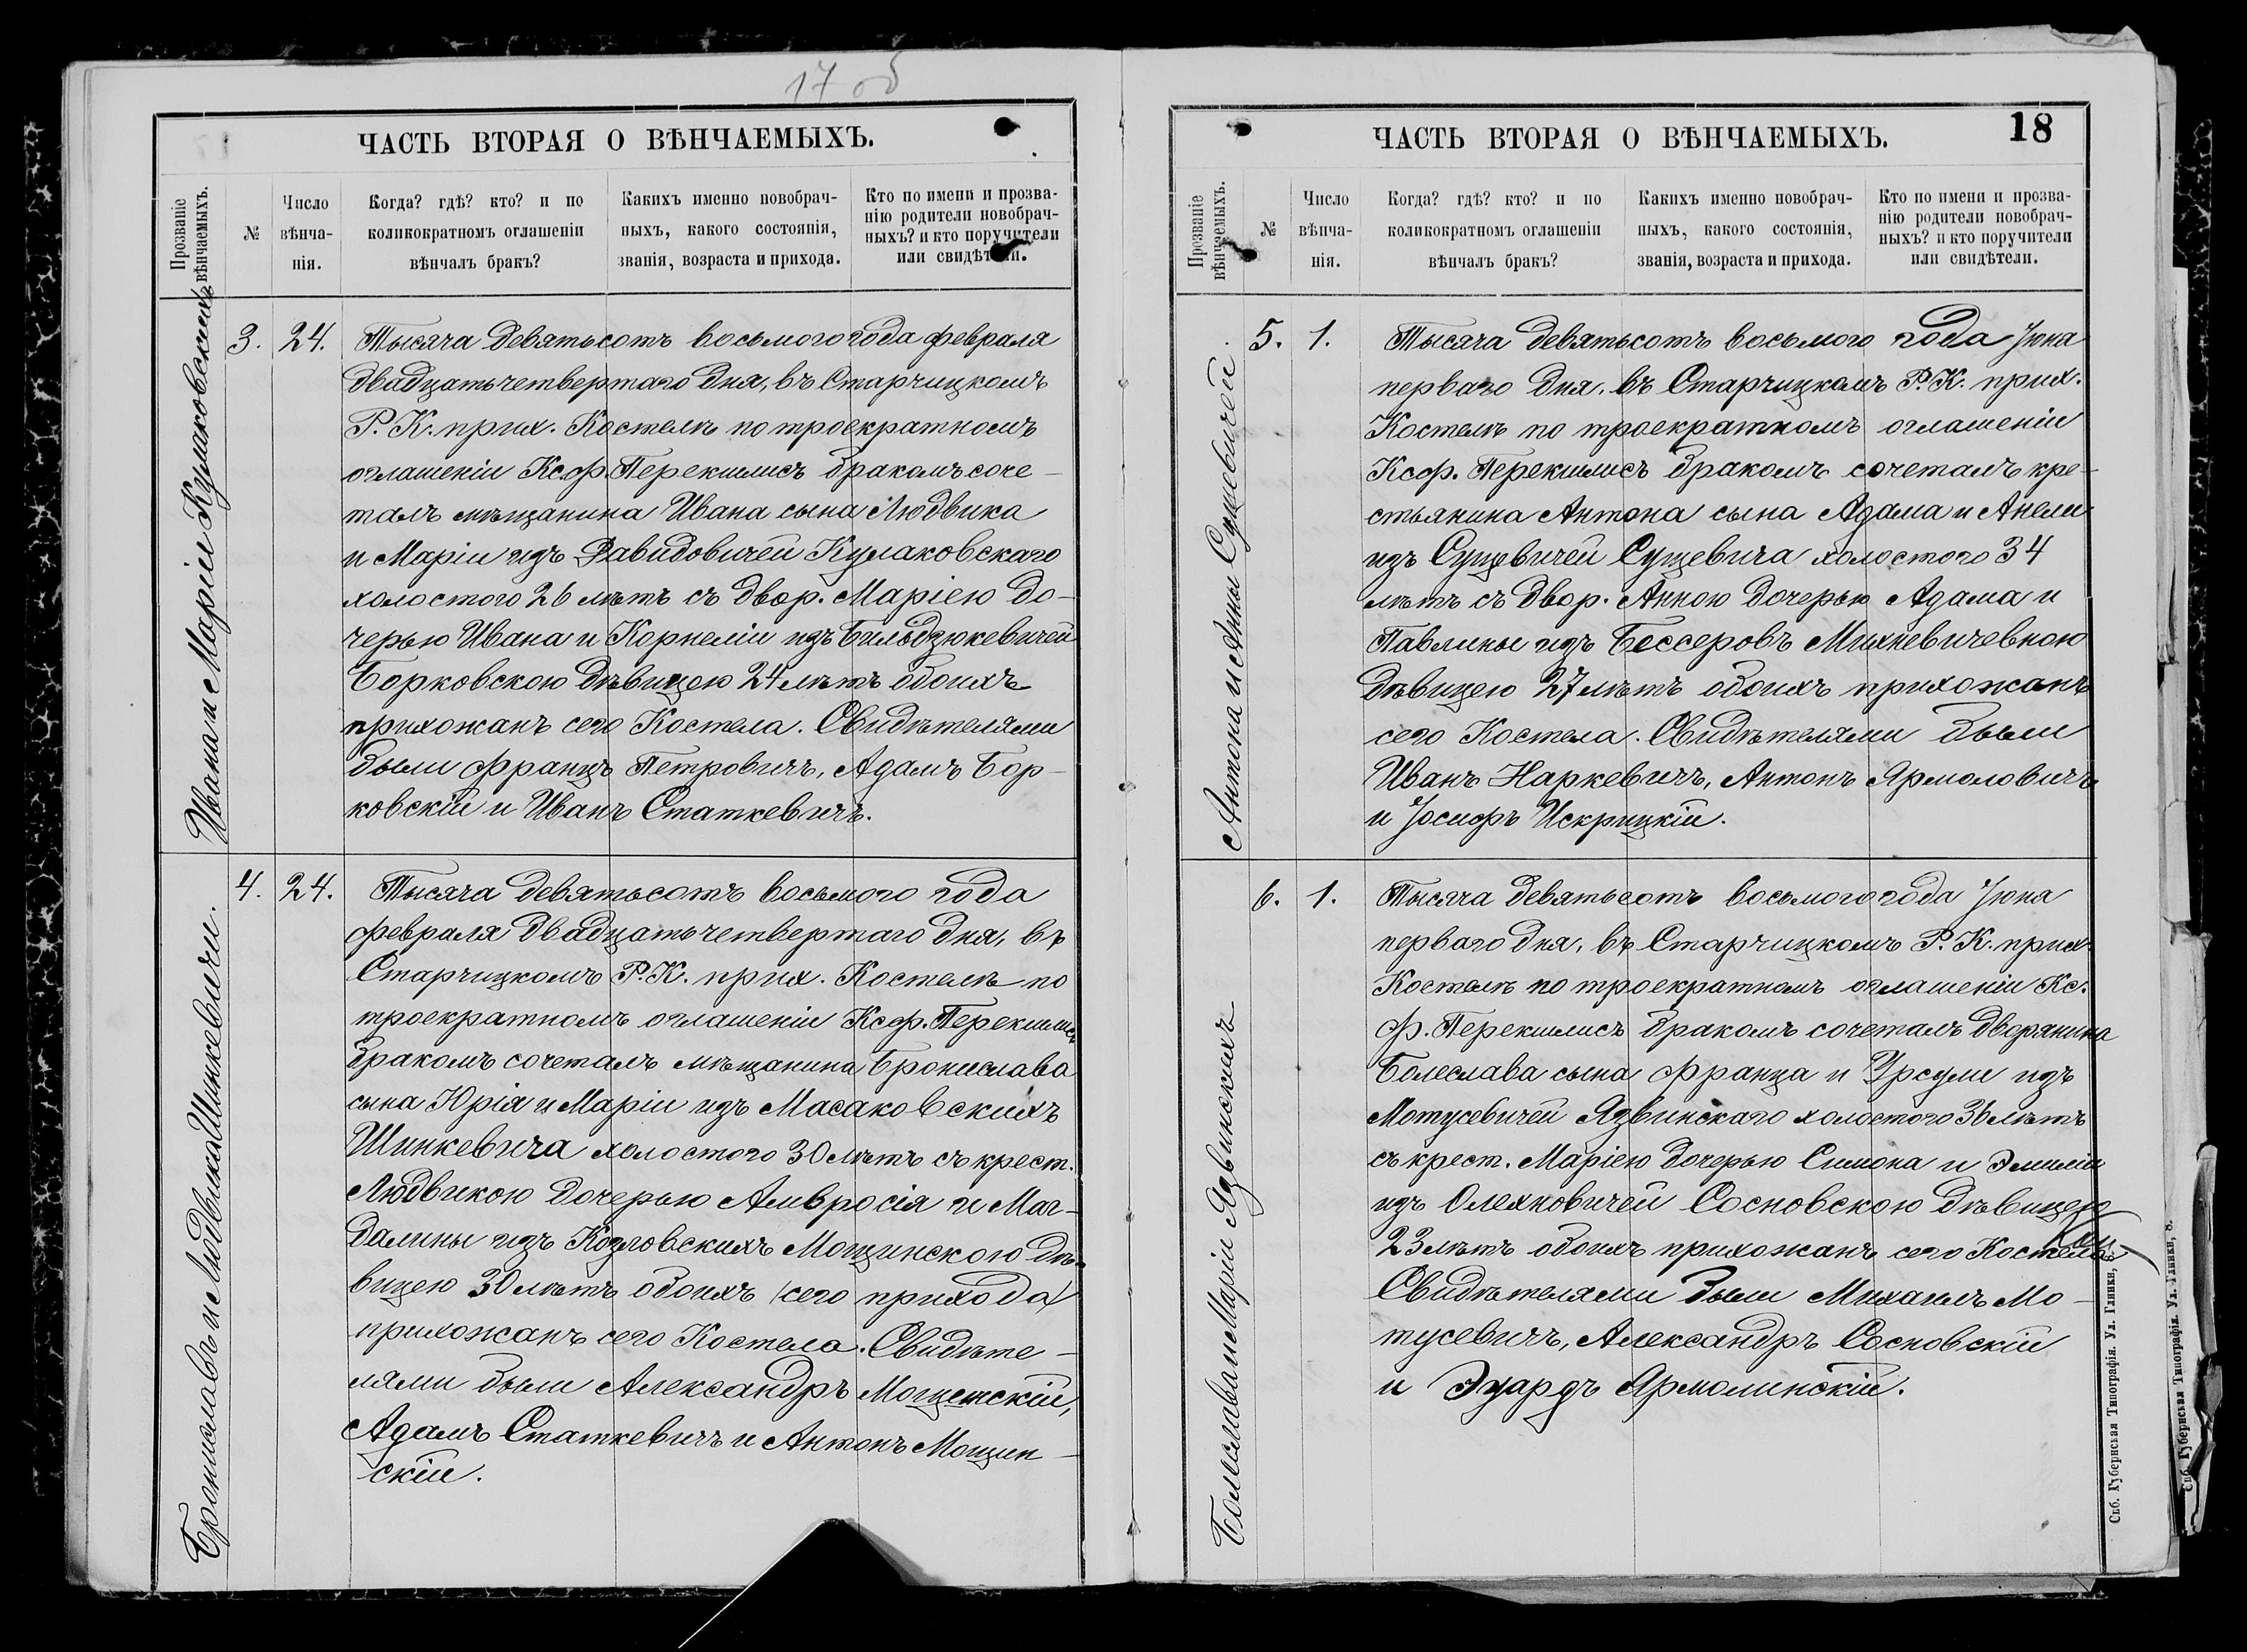 17 об
ЧАСТЬ ВТОРАЯ О ВѢНЧАЕМЫХЪ.
Прозваніе вѣнчаемыхъ.
№
Число вѣнча-нія.
Когда? гдѣ? кто? и по
коликократномъ оглашеніи
вѣнчалъ бракъ?
Какихъ именно новобрач-
ныхъ, какого состоянія,
званія, возраста и прихода.
Кто по имени и прозва-
нію родители новобрач-
ныхъ? и кто поручители
или свидѣтели.
Ивана и Маріи Кулаковскихъ
3. 24. Тысяча девятьсотъ восьмого года февраля
двадцать четвертаго дня, въ Старчицкомъ
Р. К. прих. Костелѣ по троекратномъ
оглашеніи Кс. Ф. Перекшлисъ бракомъ соче-
талъ мѣщанина Ивана сына Людвика
и Маріи изъ Давидовичей Кулаковскаго
холостого 26 лѣтъ съ двор. Маріею до-
черью Ивана и Корнеліи изъ Бильдзюкевичей
Борковскою дѣвицею 24 лѣтъ обоихъ
прихожанъ сего Костела. Свидѣтелями
были Францъ Петровичъ, Адамъ Бор-
ковскій и Иванъ Статкевичъ.
Брониславъ и Людвика Шинкевичи.
4. 24. Тысяча девятьсотъ восьмого года
февраля двадцать четвертаго дня, въ
Старчицкомъ Р. К. прих. Костелѣ по
троекратномъ оглашеніи Кс. Ф. Перекшлисъ
бракомъ сочеталъ мѣщанина Бронислава
сына Юрія и Маріи изъ Масаковскихъ
Шинкевича холостого 30 лѣтъ съ крест.
Людвикою дочерью Амвросія и Маг-
далины изъ Козловскихъ Мощинскою дѣ-
вицею 30 лѣтъ обоихъ (сего прихода)
прихожанъ сего Костела. Свидѣте-
лями были Александръ Мощинскій,
Адамъ Статкевичъ и Антонъ Мощин-
скій.
18
ЧАСТЬ ВТОРАЯ О ВѢНЧАЕМЫХЪ.
Прозваніе вѣнчаемыхъ.
№
Число вѣнча-нія.
Когда? гдѣ? кто? и по
коликократномъ оглашеніи
вѣнчалъ бракъ?
Какихъ именно новобрач-
ныхъ, какого состоянія,
званія, возраста и прихода.
Кто по имени и прозва-
нію родители новобрач-
ныхъ? и кто поручители
или свидѣтели.
Антона и Анны Сущевичей.
5. 1. Тысяча девятьсотъ восьмого года Іюна
перваго дня, въ Старчицкомъ Р. К. прих.
Костелѣ по троекратномъ оглашеніи
Кс. Ф. Перекшлисъ бракомъ сочеталъ кре-
стьянина Антона сына Адама и Анели
изъ Сущевичей Сущевича холостого 34
лѣтъ съ двор. Анною дочерью Адама и
Павлины изъ Бессеровъ Михневичевною
дѣвицею 27 лѣтъ обоихъ прихожанъ
сего Костела. Свидѣтелями были
Иванъ Наркевичъ, Антонъ Ярмоловичъ
и Іосифъ Искрицкій.
Болеслава и Маріи Язвинскихъ
6. 1. Тысяча девятьсотъ восьмого года Іюна
перваго дня, въ Старчицкомъ Р. К. прих.
Костелѣ по троекратномъ оглашеніи Кс.
Ф. Перекшлисъ бракомъ сочеталъ дворянина
Болеслава сына Франца и Урсули изъ
Мотусевичей Язвинскаго холостого 36 лѣтъ
съ крест. Маріею дочерью Симона и Эмиліи
изъ Олехновичей Сосновскою дѣвицею
23 лѣтъ обоихъ прихожанъ сего Костела
Свидѣтелями были Михаилъ Мо-
тусевичъ, Александръ Сосновскій
и Эдуардъ Ярмолинскій.
Спб. Губернская Типографія. Ул. Глинки, 8.
Спб. Губернская Типографія. Ул. Глинки, 8.